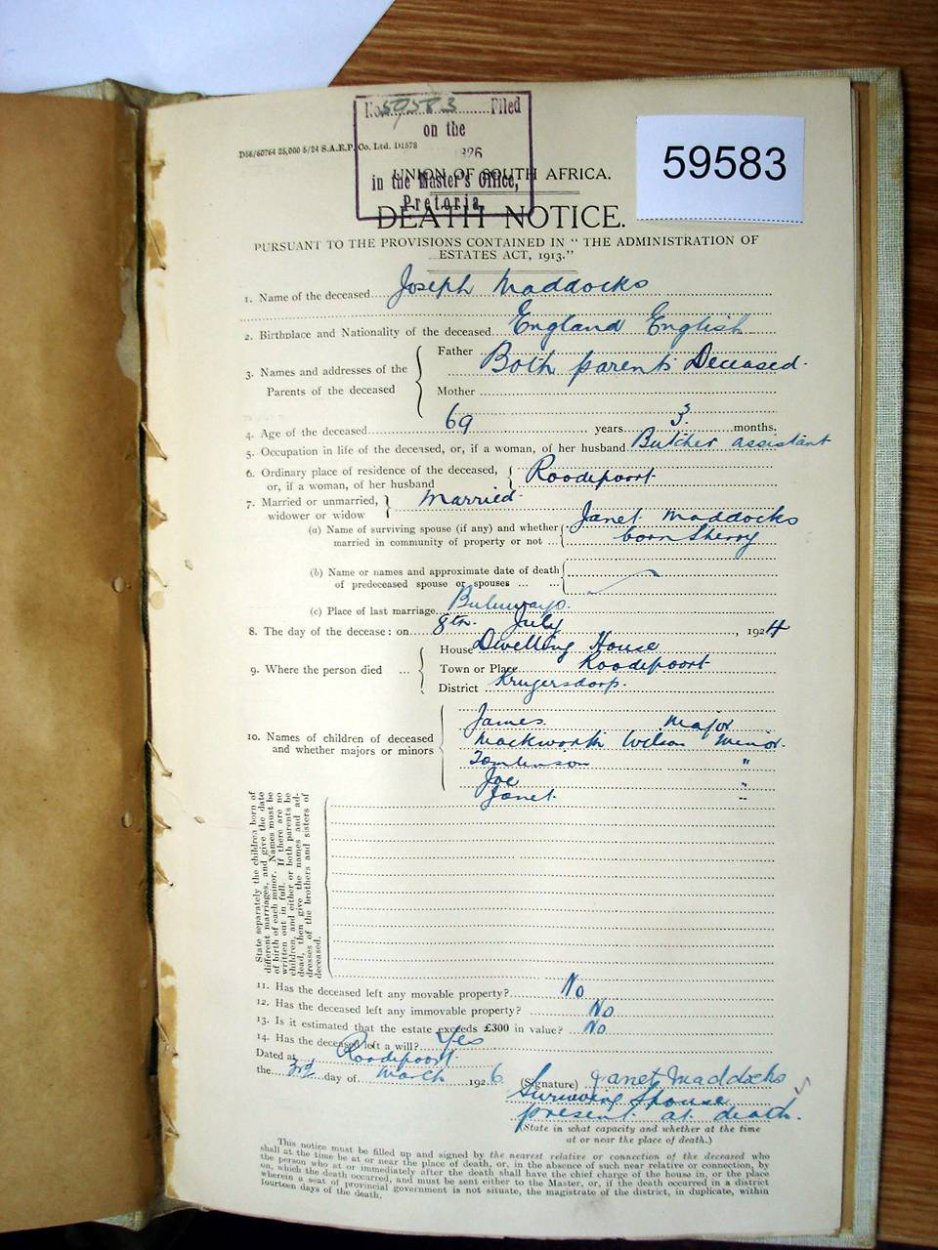 No. 59583 Filed
on the
1926
in the Master's Office,
Pretoria
59583
D56/60764 25,000 5/24 S.A.R.P. Co. Ltd. D1578
UNION OF SOUTH AFRICA.
DEATH NOTICE.
PURSUANT TO THE PROVISIONS CONTAINED IN “ THE ADMINISTRATION OF
ESTATES ACT, 1913.”
1. Name of the deceased Joseph Maddocks
2. Birthplace and Nationality of the deceased England English
3. Names and addresses of the Parents of the deceased
Father Both parents Deceased.
Mother
4. Age of the deceased 69 years 3 months.
5. Occupation in life of the deceased, or, if a woman, of her husband Butcher assistant
6. Ordinary place of residence of the deceased,
or, if a woman, of her husband Roodepoort
7. Married or unmarried,
widower or widow Married.
(a) Name of surviving spouse (if any) and whether Janet Maddocks
married in community of property or not ... born Sherry
(b) Name or names and approximate date of death
of predeceased spouse or spouses ... ...
(c) Place of last marriage Buluwayo.
8. The day of the decease: on 8th July, 1924
9. Where the person died ...
House Dwelling House
Town or Place Roodepoort
District Krugersdorp.
10. Names of children of deceased
and whether majors or minors
James. Major
Mackworth Wilson Minor.
Tomlinson "
Joe "
Janet. "
State separately the children born of
different marriages, and give the date
of birth of each minor. Names must be
written out in full. If there are no
children, and either or both parents be
dead, then give the names and ad-
dresses of the brothers and sisters of
deceased.
11. Has the deceased left any movable property? No
12. Has the deceased left any immovable property? No
13. Is it estimated that the estate exceeds £300 in value? No
14. Has the deceased left a will? Yes
Dated at Roodepoort
the 3rd day of March 1926 (Signature) Janet Maddocks
Surviving Spouse
present at death.
(State in what capacity and whether at the time
at or near the place of death.)
This notice must be filled up and signed by the nearest relative or connection of the deceased who
shall at the time be at or near the place of death, or, in the absence of such near relative or connection, by
the person who at or immediately after the death shall have the chief charge of the house in, or the place
on, which the death occurred, and must be sent either to the Master, or, if the death occurred in a district
wherein a seat of provincial government is not situate, the magistrate of the district, in duplicate, within
fourteen days of the death.